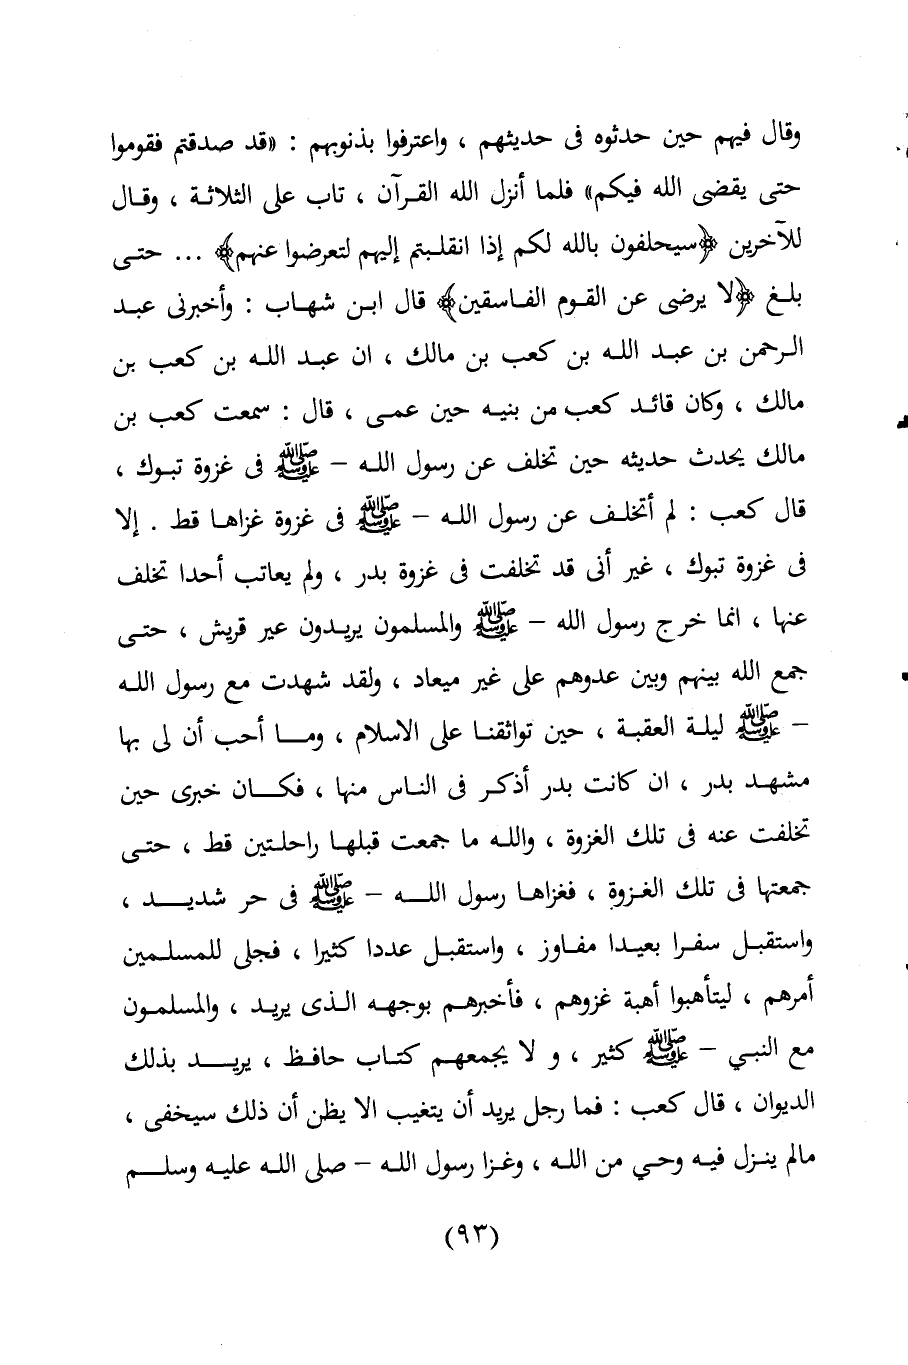 وقال فيهم حين حدثوه فى حديثهم ، واعترفوا بذنوبهم : «قد صدقتم فقوموا
حتى يقضى الله فيكم» فلما أنزل الله القرآن ، تاب على الثلاثة ، وقال
للآخرين ﴿سيحلفون بالله لكم إذا انقلبتم إليهم لتعرضوا عنهم﴾ ... حتى
بلغ ﴿لا يرضى عن القوم الفاسقين﴾ قال ابن شهاب : وأخبرنى عبد
الرحمن بن عبد الله بن كعب بن مالك ، ان عبد الله بن كعب بن
مالك ، وكان قائد كعب من بنيه حين عمى ، قال : سمعت كعب بن
مالك يحدث حديثه حين تخلف عن رسول الله – ﷺ فى غزوة تبوك ،
قال كعب : لم أتخلف عن رسول الله – ﷺ فى غزوة غزاها قط . إلا
فى غزوة تبوك ، غير أنى قد تخلفت فى غزوة بدر ، ولم يعاتب أحدا تخلف
عنها ، انما خرج رسول الله – ﷺ والمسلمون يريدون عير قريش ، حتى
جمع الله بينهم وبين عدوهم على غير ميعاد ، ولقد شهدت مع رسول الله
– ﷺ ليلة العقبة ، حين تواثقنا على الاسلام ، وما أحب أن لى بها
مشهد بدر ، ان كانت بدر أذكر فى الناس منها ، فكان خبرى حين
تخلفت عنه فى تلك الغزوة ، والله ما جمعت قبلها راحلتين قط ، حتى
جمعتها فى تلك الغزوة ، فغزاها رسول الله – ﷺ فى حر شديد ،
واستقبل سفرا بعيدا مفاوز ، واستقبل عددا كثيرا ، فجلى للمسلمين
أمرهم ، ليتأهبوا أهبة غزوهم ، فأخبرهم بوجهه الذى يريد ، والمسلمون
مع النبي – ﷺ كثير ، و لا يجمعهم كتاب حافظ ، يريد بذلك
الديوان ، قال كعب : فما رجل يريد أن يتغيب الا يظن أن ذلك سيخفى ،
مالم ينزل فيه وحي من الله ، وغزا رسول الله – صلى الله عليه وسلم
(٩٣)